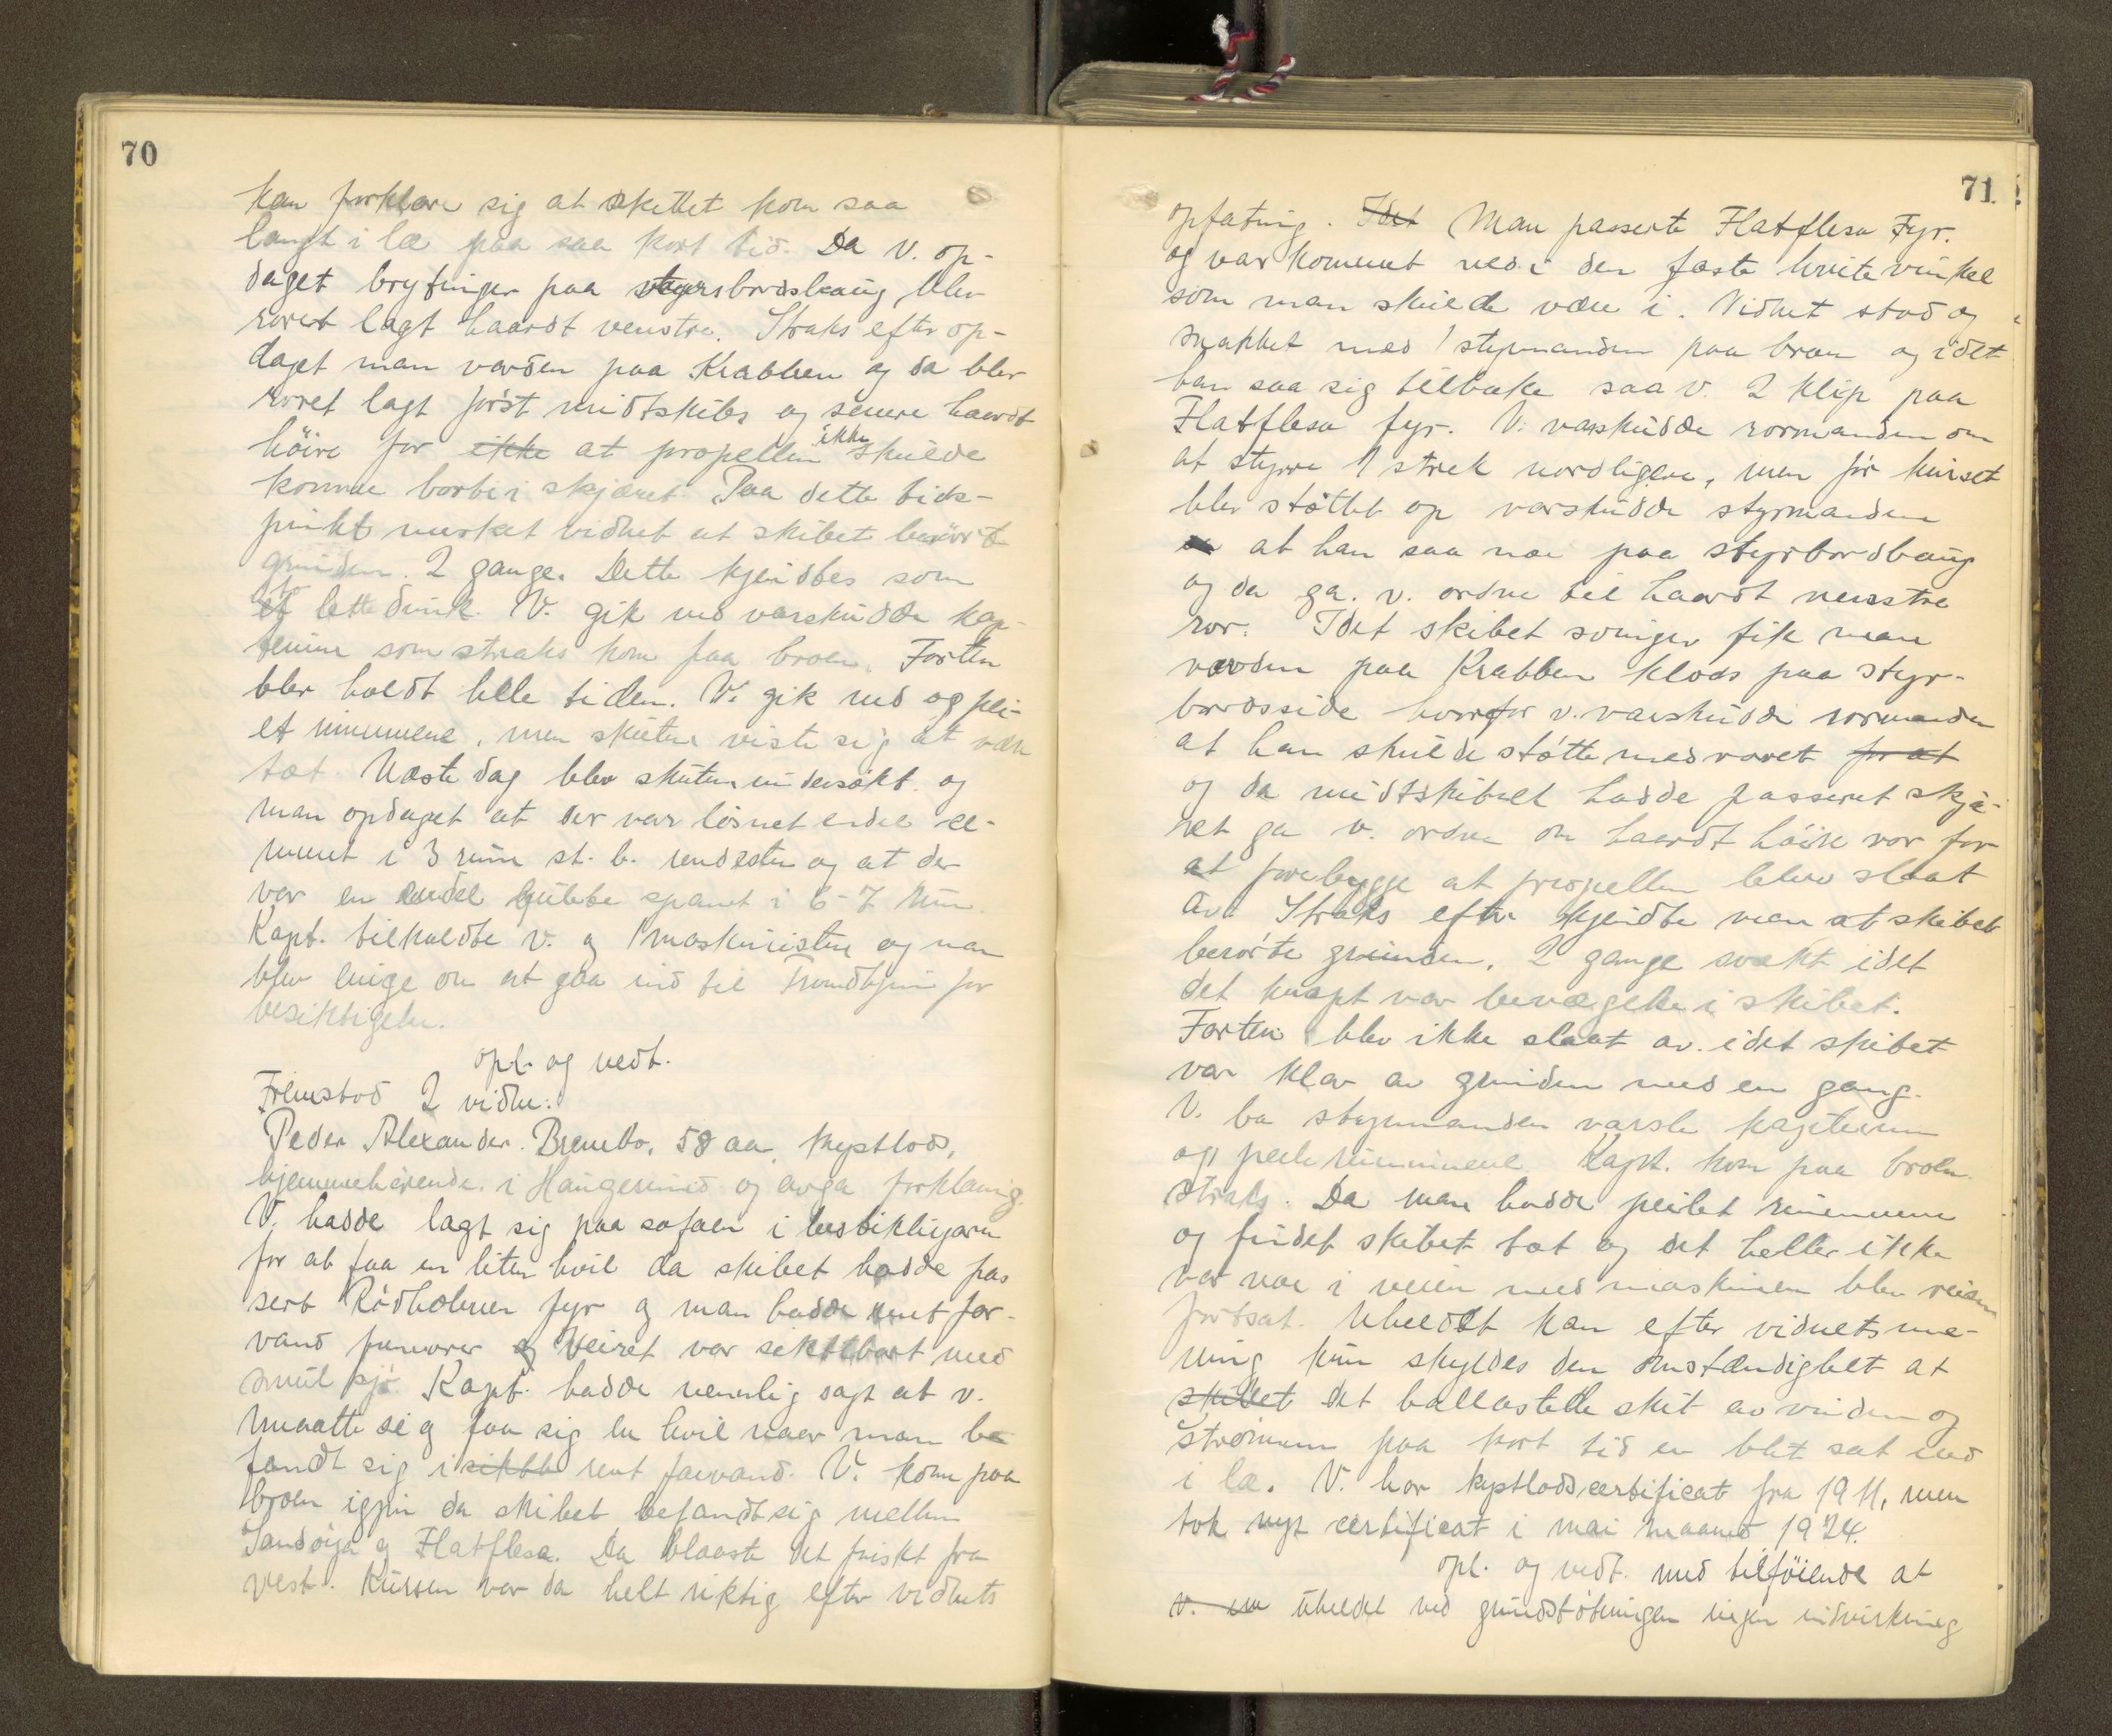 70
kan forklare sig at skettet kom saa
langt i læ paa saa kort tid. Da v. op-
daget brytninger paa styrsbordsbaug blev
roret lagt haardt venstre. Straks efter op-
daget man varden paa Krabben og da blev
roret lagt først midtskibs og senere haardt
høire for ikke at propellen ikke skulde
komme borti i skjæret. Paa dette tids-
punkt merket vidnet at skibet berørte
grunden. 2 gange. Dette kjendtes som
et lette dunk. V. gik ned varskudde kap-
teinen som straks kom paa broen. Farten
blev holdt hele tiden. V. gik ned og pei-
et rummene, men skuten viste sig at være
tæt. Næste dag blev skuten undersøkt og
man opdaget at der var løsnet endel ce-
ment i 3 rum st. b. rendesten og at der
var en endel spanet i 6-7 rum.
Kapt. tilkaldte v. og 1 maskinisten og man
blev enige om at gaa ind til Trondhjem for
besiktigelse.
opl. og vedt.
Fremstod 2 vidne:
Peder Alexander Brembo, 58 aar, kystlods,
hjemmehørende i Haugesund og avga forklaring.
V. hadde lagt sig paa sofaen i bestiklugaren
for at faa en liten hvil da skibet hadde pas
sert Rødholmen fyr og man hadde rent far-
vand forover og Veiret var siktbart med
smul sjø. Kapt. hadde nemlig sagt at v.
maatte se og faa sig en hvil naar man be
fandt sig i sikkt rent farvand. V. kom paa
broen igjen da skibet befandt sig mellem
Sandøya og Flatflesa. Da blaaste det friskt fra
vest. Kursen var da helt riktig efter vidnets
71
opfatning. Idet Man passerte Flatflesa Fyr.
og var kommet ned i den faste hvite vinkel
som man skulde være i. Vidnet stod og
snakket med 1 styrmanden paa broen og idet
han saa sig tilbake saa v. 2 klip paa
Flatflesa fyr. V. varskudde rormanden om
at styre 1 strek nordligere, men før kurset
blev støttet op varskudde styrmanden
at han saa noe paa styrbordbaug
og da ga. v. ordre til haardt venstre
ror. Idet skibet svinger fik man
varden paa Krabben klods paa styr-
bordsside hvorfor v. varskudde rormanden
at han skulde støtte med roret for at
og da midtskibet hadde passeret skjæ-
ret ga v. ordre om haardt høire ror for
at forebygge at propellen blev slaat
av. Straks efter kjendte man at skibet
berørte grunden, 2 gange svakt idet
det knapt var bevægelse i skibet.
Farten blev ikke slaat av. idet skibet
var klar av grunden med en gang.
V. ba styrmanden varsle kapteinen
og peile rummene. Kapt. kom paa broen
straks. Da man hadde peilet rummene
og fundet skibet tæt og det heller ikke
var noe i veien med maskinen blev reisen
fortsat. Uheldet kan efter vidnets me-
ning kun skyldes den omstændighet at
skibet det ballastede skib av vinden og
Strømmen paa kort tid er blit sat ind
i læ. V. har kystlodscertificat fra 1911, men
tok nyt certificat i mai maaned 1924.
opl. og vedt. med tilføiende at
v. uheldet ved grundstøtningen ingen indvirkning